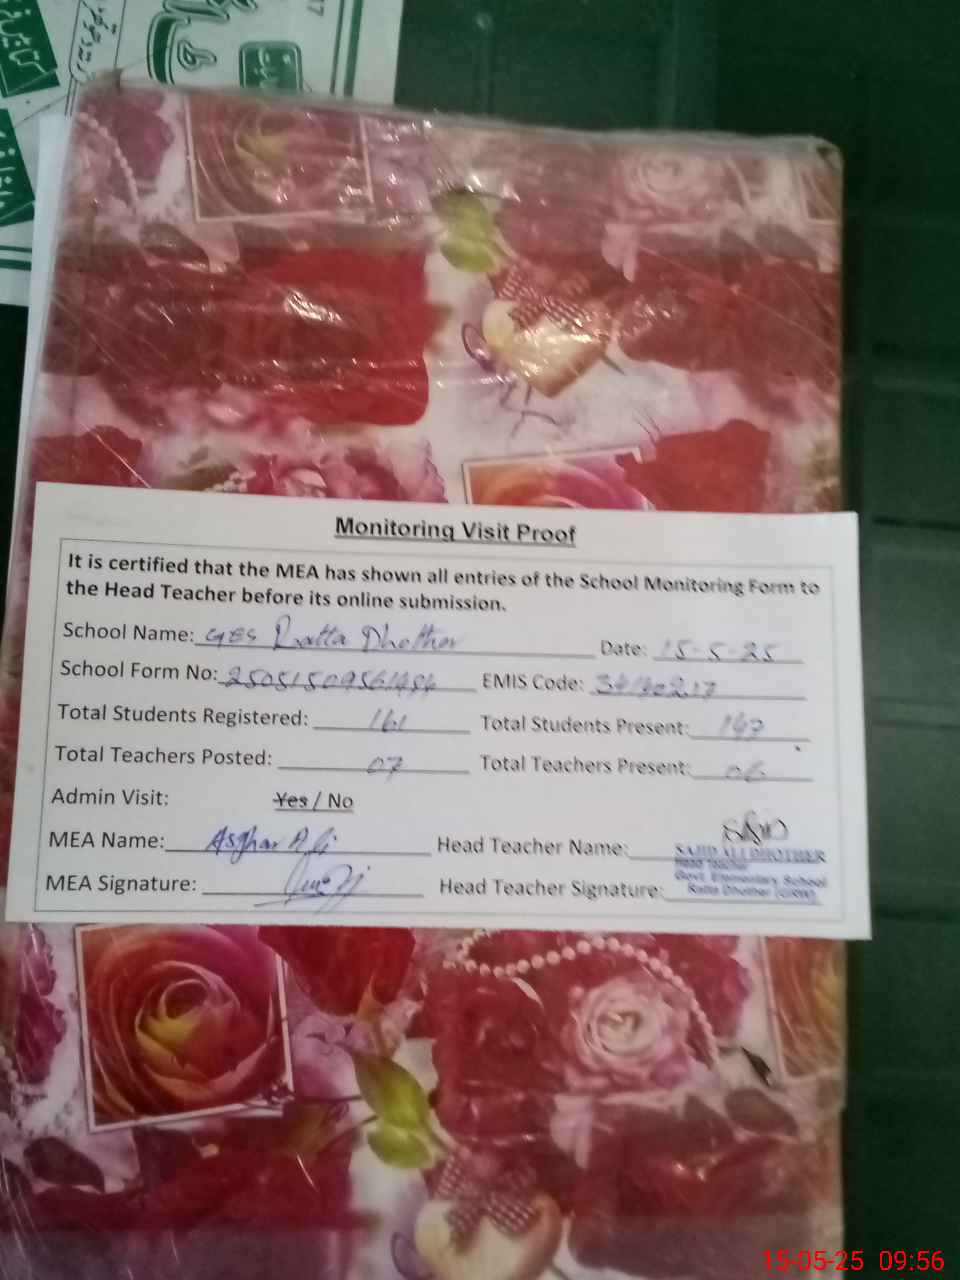 Monitoring Visit Proof
It is certified that the MEA has shown all entries of the School Monitoring Form to
the Head Teacher before its online submission.
School Name: GES Ratta Dhother Date: 15-5-25
School Form No: EMIS Code:
Total Students Registered: 161 Total Students Present: 147
Total Teachers Posted: 07 Total Teachers Present: 06
Admin Visit: Yes / No
MEA Name: Asghar Ali Head Teacher Name:
SAJID ALI DHOTHER
Head Teacher
Govt. Elementary School
Ratta Dhother (GRW)
MEA Signature: Head Teacher Signature:
15-05-25 09:56